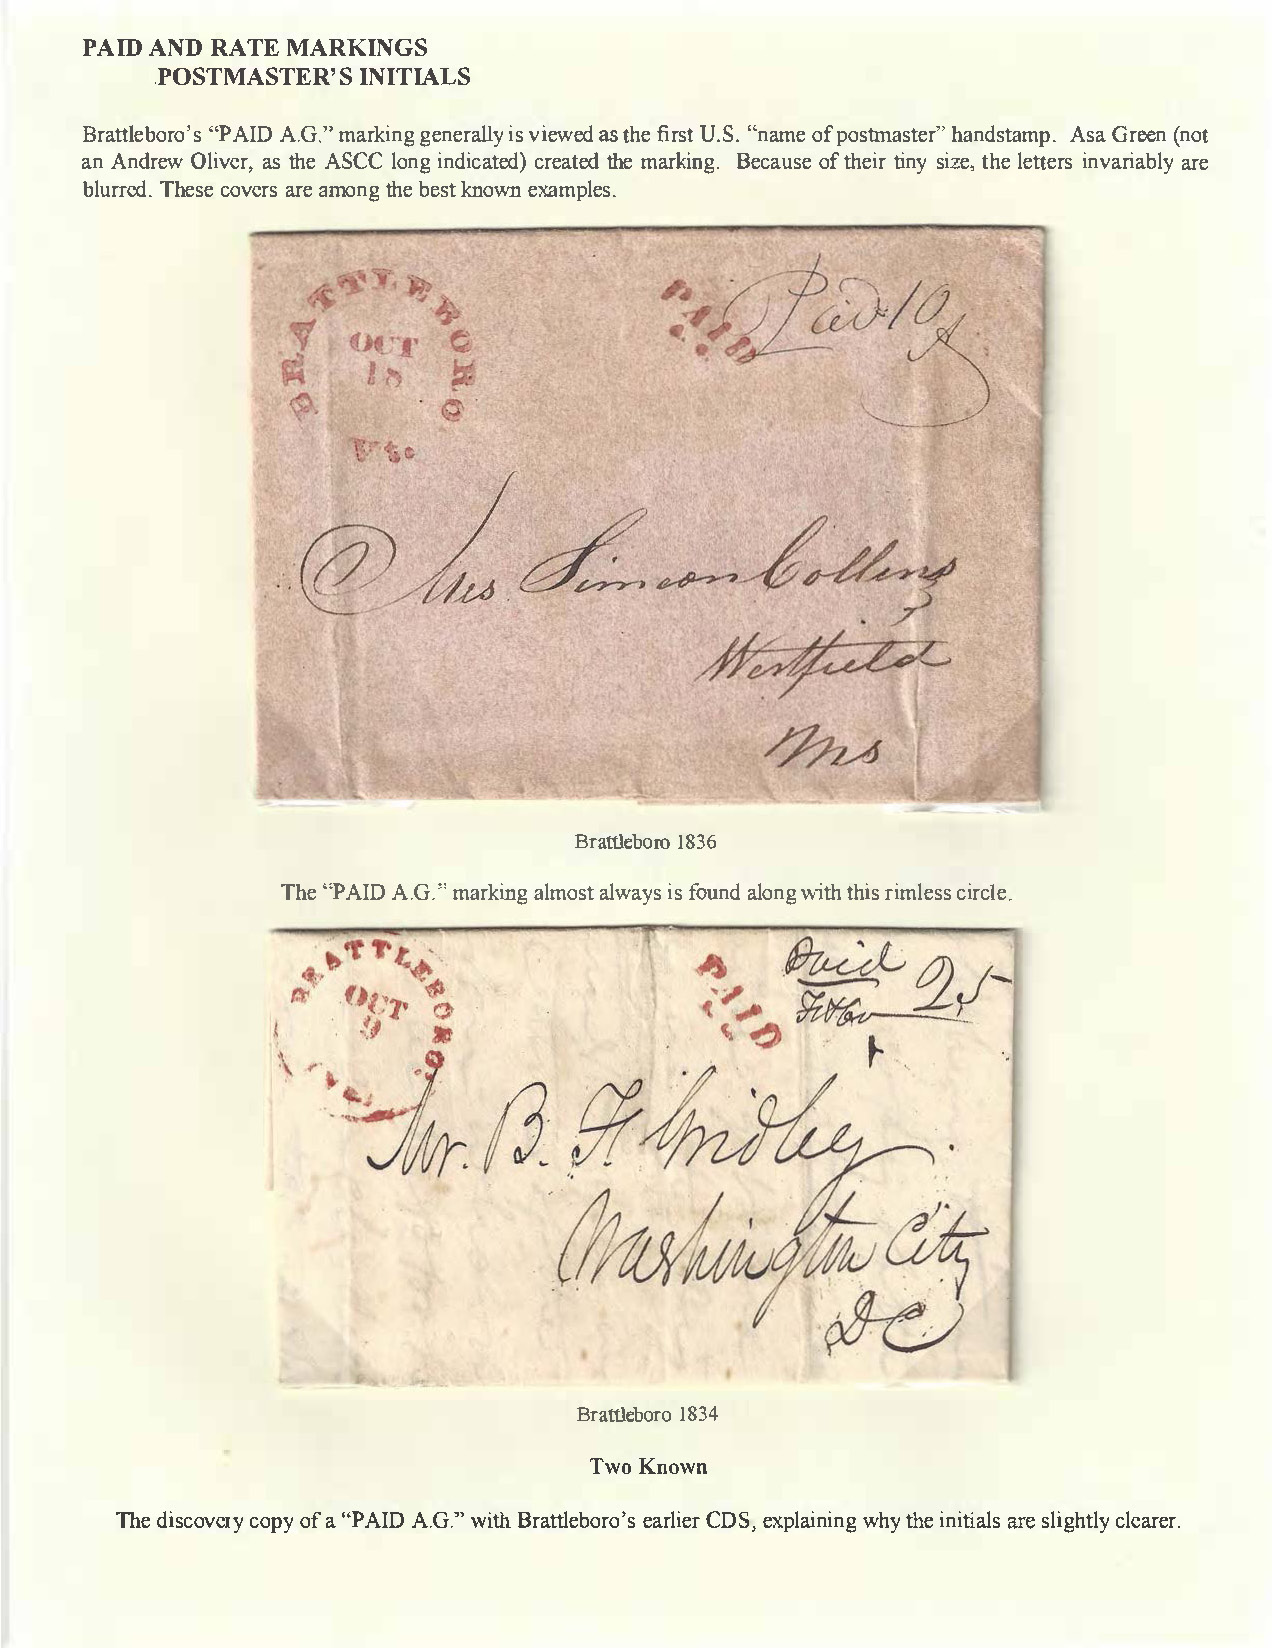 PAID AND RATE MARKINGS
POSTMASTER'S INITIALS
Brattleboro's "PAID A.G." marking generally is viewed as the first U.S. "name of postmaster" handstamp. Asa Green (not
an Andrew Oliver, as the ASCC long indicated) created the marking. Because of their tiny size, the letters invariably are
blurred. These covers are among the best known examples.
BRATTLEBORO
OCT
18
Vt.
PAID
Paid 10
Mrs Simeon Collins
Westfield
Ms
Brattleboro 1836
The "PAID A.G." marking almost always is found along with this rimless circle.
BRATTLEBORO
OCT
9
PAID
Paid 25
Mr. B. F.
Washington City
DC
Brattleboro 1834
Two Known
The discovery copy of a "PAID A.G." with Brattleboro's earlier CDS, explaining why the initials are slightly clearer.